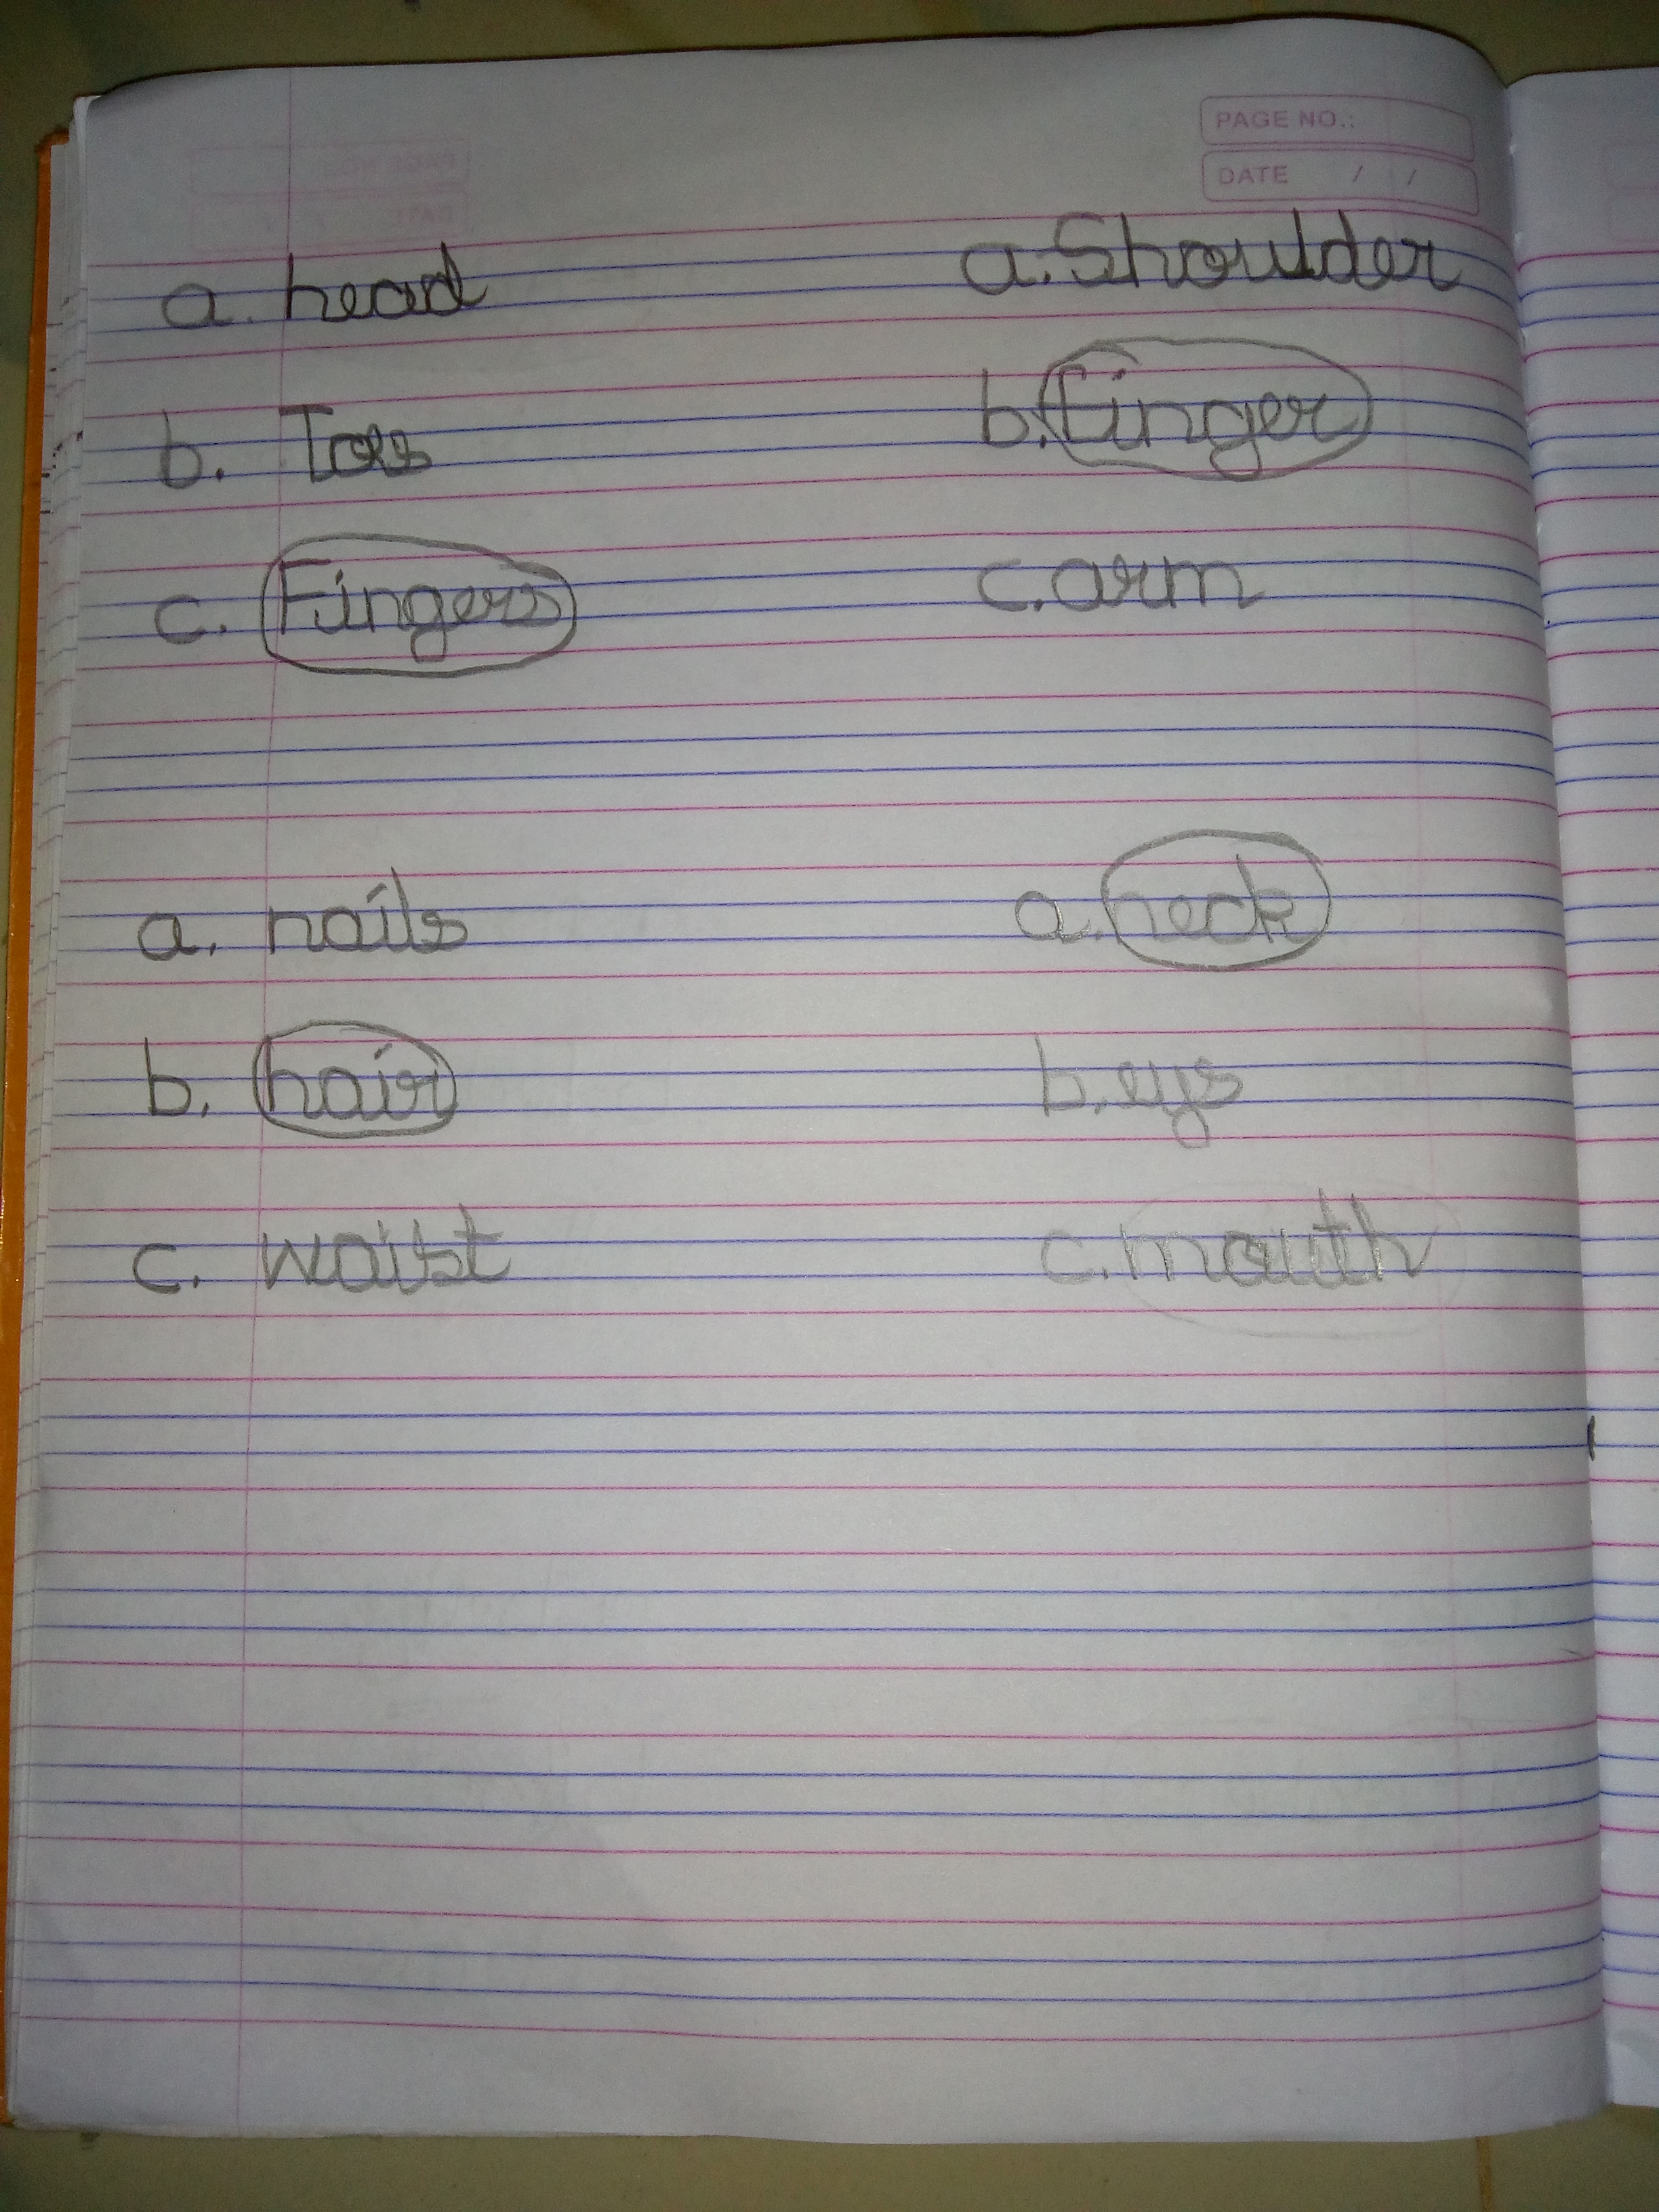 PAGE NO.:
DATE / /
a. head
b. Toes
c. Fingers
a. Shoulder
b. Finger
c. arm
a. nails
b. hair
c. waist
a. neck
b. eys
c. mouth